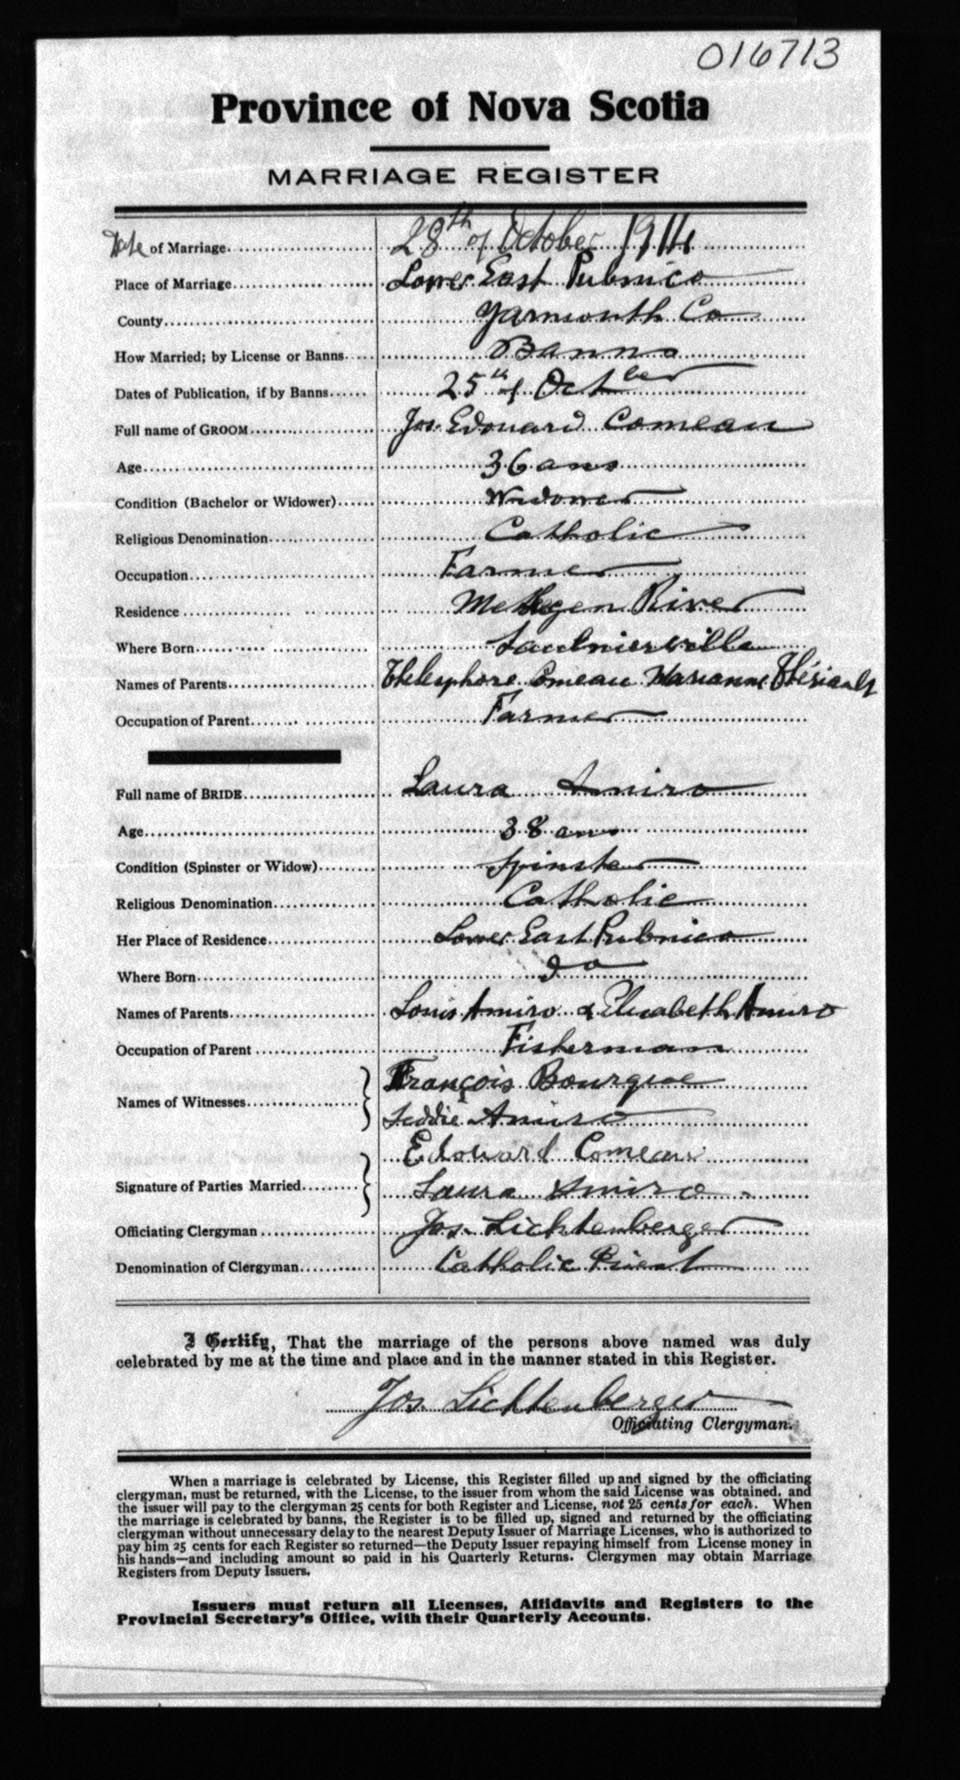 016713
Province of Nova Scotia
MARRIAGE REGISTER
Date of Marriage 28th of October 1914
Place of Marriage Lower East Pubnico
County Yarmouth Co
How Married; by License or Banns Banns
Dates of Publication, if by Banns 25th of Octber
Full name of GROOM Jos. Edouard Comeau
Age 36 ans
Condition (Bachelor or Widower) Widower
Religious Denomination Catholic
Occupation Farmer
Residence Metegen River
Where Born Saulnierville
Names of Parents Thelesphore Comeau Marianne Thériault
Occupation of Parent Farmer
Full name of BRIDE Laura Amiro
Age 38 ans
Condition (Spinster or Widow) Spinster
Religious Denomination Catholic
Her Place of Residence Lower East Pubnico
Where Born do
Names of Parents Louis Amiro & Elisabeth Amiro
Occupation of Parent Fisherman
Names of Witnesses François Bourque
Leddie Amiro
Signature of Parties Married Edouard Comeau
Laura Amiro
Officiating Clergyman Jos. Lichtenberger
Denomination of Clergyman Catholic Priest
I Certify, That the marriage of the persons above named was duly
celebrated by me at the time and place and in the manner stated in this Register.
Jos. Lichtenberger
Officiating Clergyman.
When a marriage is celebrated by License, this Register filled up and signed by the officiating
clergyman, must be returned, with the License, to the issuer from whom the said License was obtained, and
the issuer will pay to the clergyman 25 cents for both Register and License, not 25 cents for each. When
the marriage is celebrated by banns, the Register is to be filled up, signed and returned by the officiating
clergyman without unnecessary delay to the nearest Deputy Issuer of Marriage Licenses, who is authorized to
pay him 25 cents for each Register so returned—the Deputy Issuer repaying himself from License money in
his hands—and including amount so paid in his Quarterly Returns. Clergymen may obtain Marriage
Registers from Deputy Issuers.
Issuers must return all Licenses, Affidavits and Registers to the
Provincial Secretary's Office, with their Quarterly Accounts.